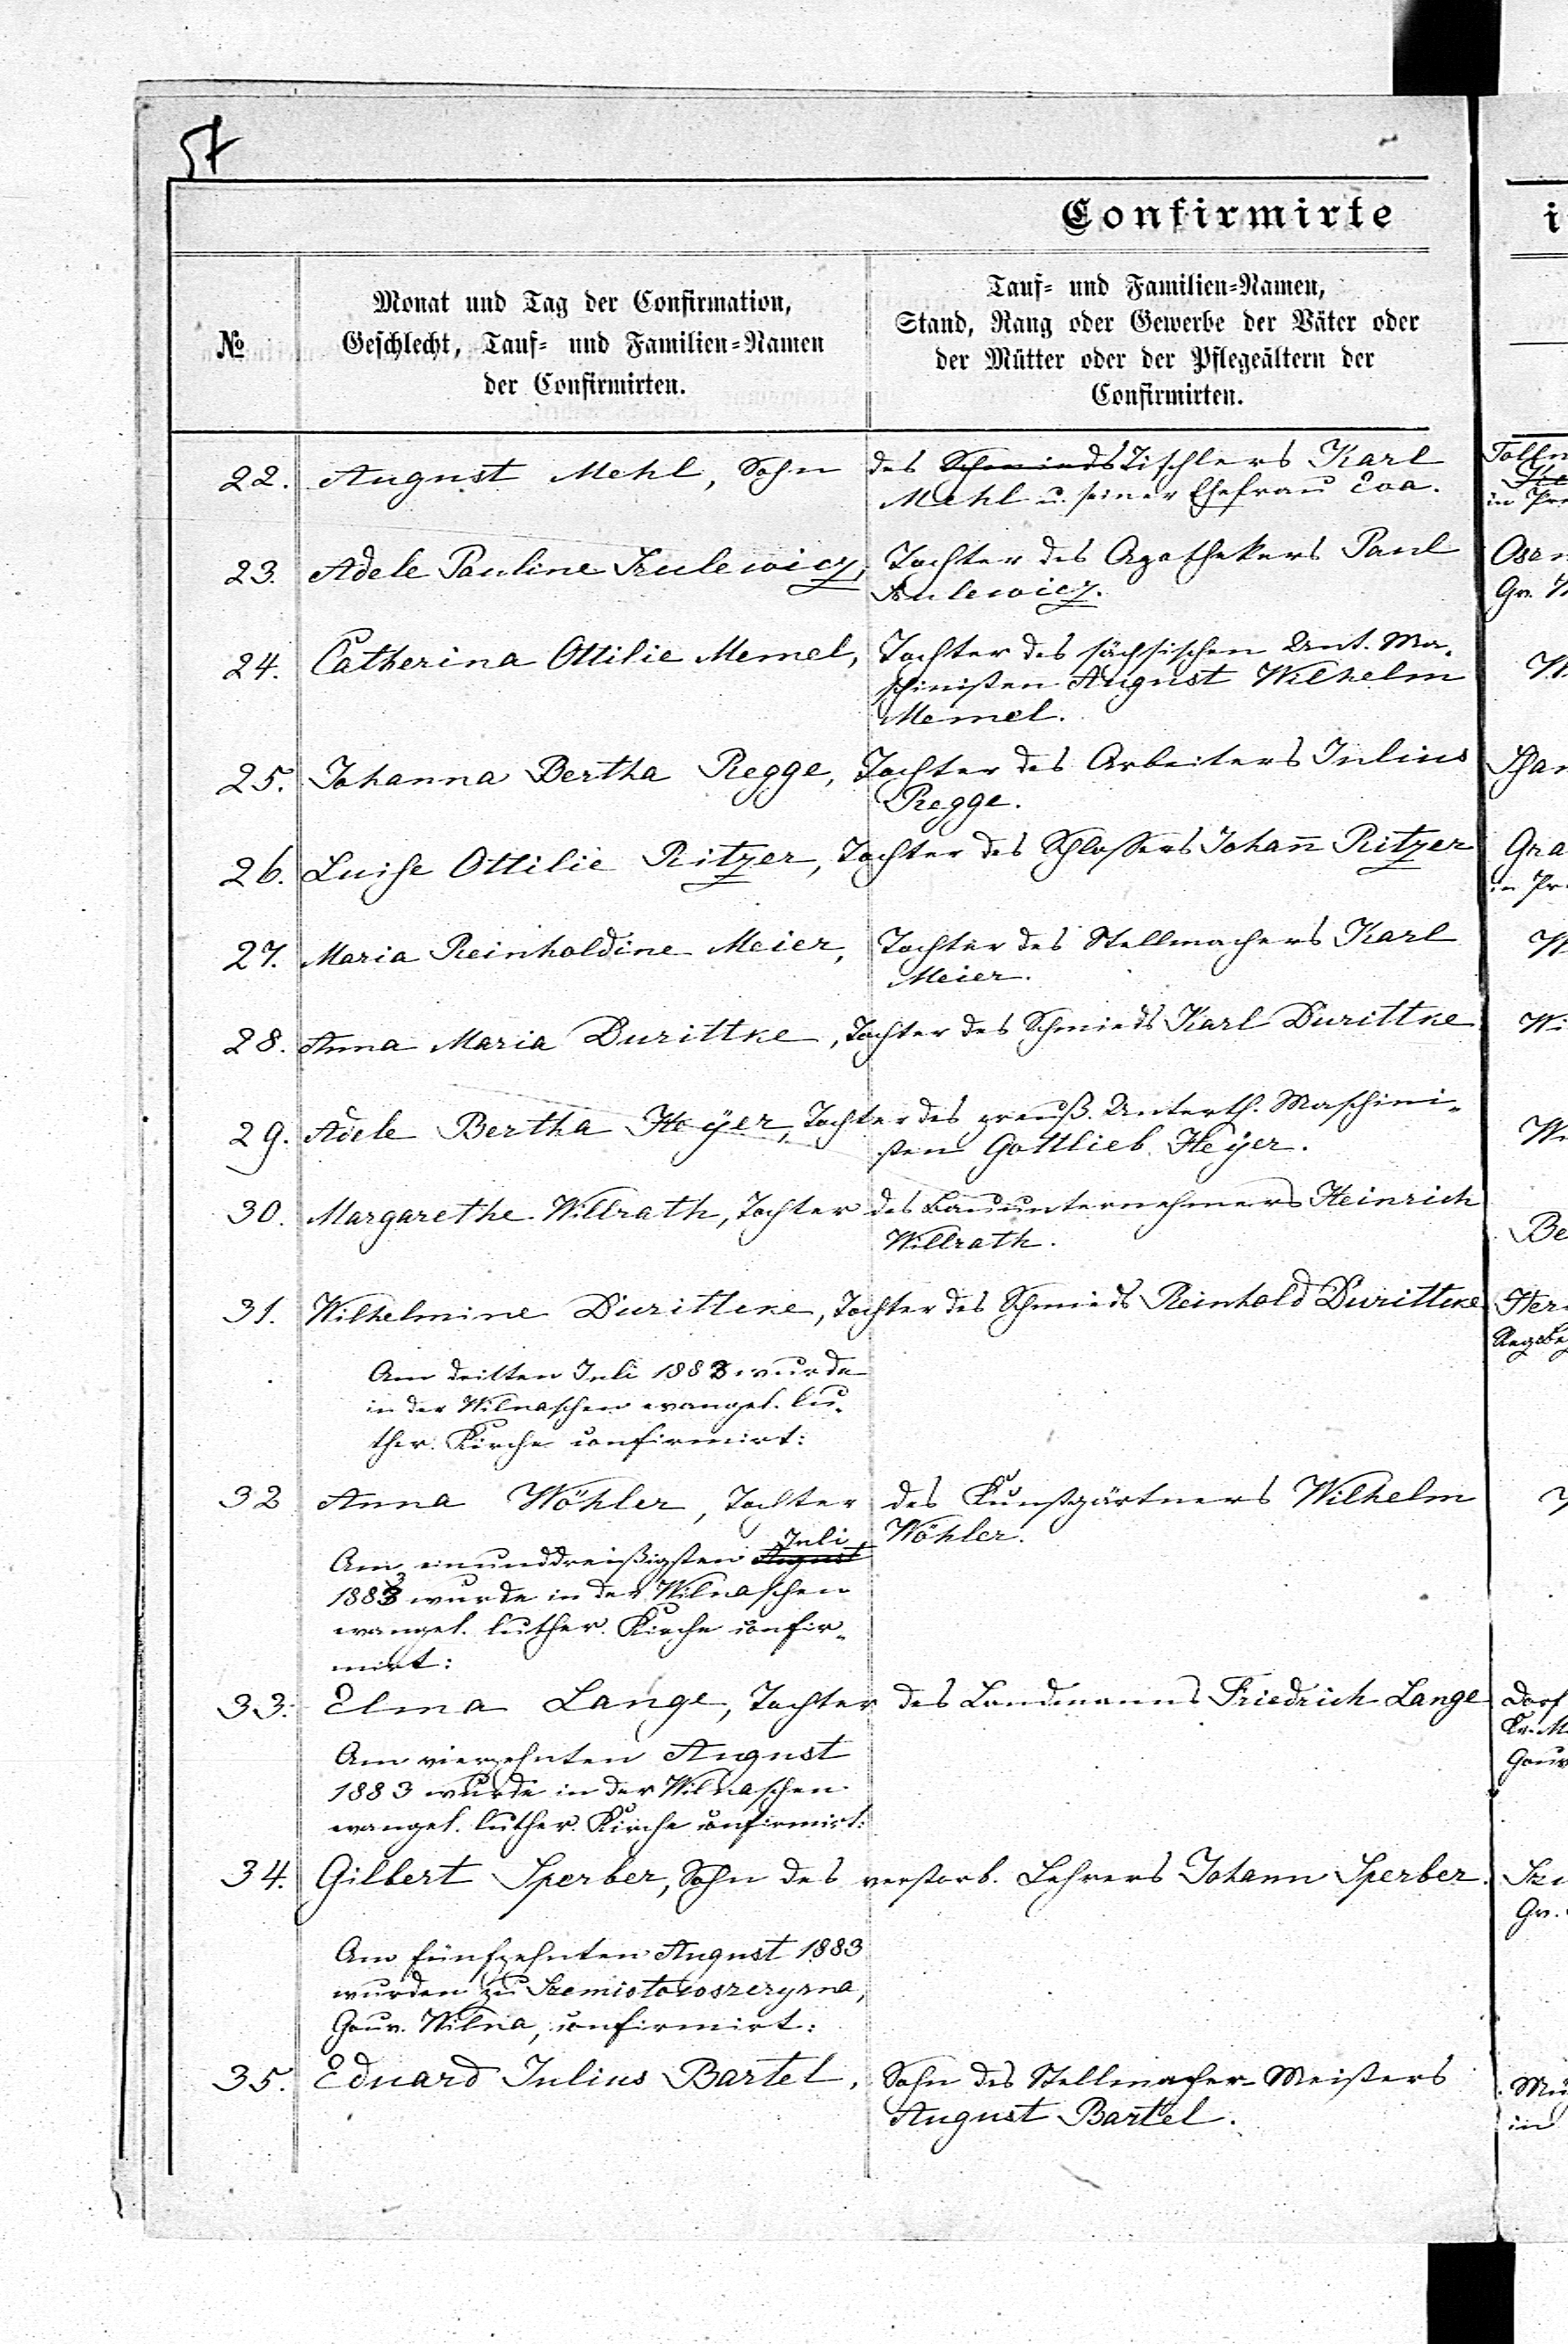 57
Confirmirte
№
Monat und Tag der Confirmation,
Geschlecht, Tauf- und Familien-Namen
der Confirmirten.
Tauf- und Familien-Namen,
Stand, Rang oder Gewerbe der Väter oder
der Mütter oder der Pflegeältern der
Confirmirten.
22. August Mehl, Sohn des Schmieds Tischlers Karl
Mehl u. seiner Ehefrau Eva.
23. Adele Pauline Kulewicz, Tochter des Apothekers Paul
Kulewicz.
24. Catherina Ottilie Memel, Tochter des sächsischen Unt. Ma-
schinisten August Wilhelm
Memel.
25. Johanna Bertha Regge, Tochter des Arbeiters Julius
Regge.
26. Luise Ottilie Ritzer, Tochter des Schlossers Johan̄ Ritzer
27. Maria Reinholdine Meier, Tochter des Stellmachers Karl
Meier.
28. Anna Maria Durittke, Tochter des Schmieds Karl Durittke
29. Adele Bertha Heÿer, Tochter des preuß. Unterth. Maschini-
sten Gottlieb Heÿer.
30. Margarethe Willrath, Tochter des Bauunternehmers Heinrich
Willrath.
31. Wilhelmine Durittke, Tochter des Schmieds Reinhold Durittke
Am dritten Juli 1883 wurde
in der Wilnaschen evangel. lu-
ther. Kirche confirmirt:
32 Anna Wöhler, Tochter des Kunstgärtners Wilhelm
Wöhler.
Am einunddreißigsten August Juli
1883 wurde in der Wilnaschen
evangel. luther. Kirche confir-
mirt:
33. Elma Lange, Tochter des Landmanns Friedrich Lange
Am vierzehnten August
1883 wurde in der Wilnaschen
evangel. luther. Kirche confirmirt:
34. Gilbert Sperber, Sohn des verstorb. Lehrers Johann Sperber.
Am fünfzehnten August 1883
wurden zu
Gouv. Wilna, confirmirt:
35. Eduard Julius Bartel, Sohn des Stellmacher-Meisters
August Bartel.